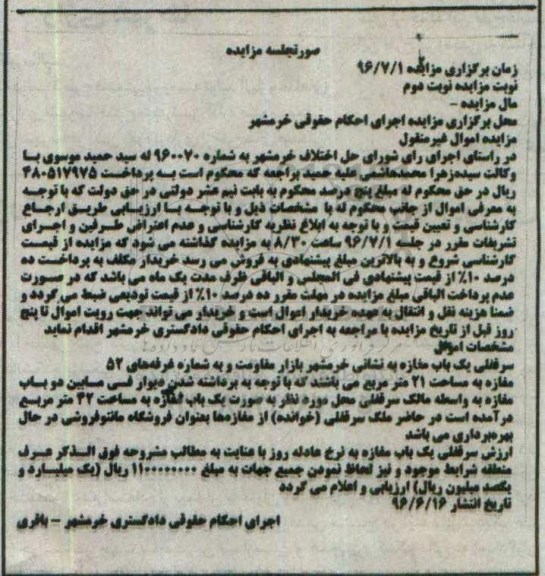 صورتجلسه مزایده
زمان برگزاری مزایده ۹۶/۷/۱
نوبت مزایده نوبت دوم
مال مزایده –
محل برگزاری مزایده اجرای احکام حقوقی خرمشهر
مزایده اموال غیرمنقول
در راستای اجرای رای شورای حل اختلاف خرمشهر به شماره ۹۶۰۰۷۰ له سید حمید موسوی با
وکالت سیده‌زهرا محمدهاشمی علیه حمید براجعه که محکوم است به پرداخت ۴۸۰۵۱۷۹۷۵
ریال در حق محکوم له مبلغ پنج درصد محکوم به بابت نیم عشر دولتی در حق دولت که با توجه
به معرفی اموال از جانب محکوم له با مشخصات ذیل و با توجه با ارزیابی طریق ارجاع
کارشناسی و تعیین قیمت و با توجه به ابلاغ نظریه کارشناسی و عدم اعتراض طرفین و اجرای
تشریفات مقرر در جلسه ۹۶/۷/۱ ساعت ۸/۳۰ به مزایده گذاشته می شود که مزایده از قیمت
کارشناسی شروع و به بالاترین مبلغ پیشنهادی به فروش می رسد خریدار مکلف به پرداخت ده
درصد ۱۰٪ از قیمت پیشنهادی فی المجلس و الباقی ظرف مدت یک ماه می باشد که در صورت
عدم پرداخت الباقی مبلغ مزایده در مهلت مقرر ده درصد ۱۰٪ از قیمت تودیعی ضبط می گردد و
ضمنا هزینه نقل و انتقال به عهده خریدار اموال است و خریدار می تواند جهت رویت اموال تا پنج
روز قبل از تاریخ مزایده با مراجعه به اجرای احکام حقوقی دادگستری خرمشهر اقدام نماید
مشخصات اموال
سرقفلی یک باب مغازه به نشانی خرمشهر بازار مقاومت و به شماره غرفه‌های ۵۲
مغازه به مساحت ۲۱ متر مربع می باشند که با توجه به برداشته شدن دیوار فی مابین دو باب
مغازه به واسطه مالک سرقفلی محل مورد نظر به صورت یک باب مغازه به مساحت ۴۲ متر مربع
درآمده است در حاضر ملک سرقفلی (خوانده) از مغازه‌ها بعنوان فروشگاه مانتوفروشی در حال
بهره‌برداری می باشد
ارزش سرقفلی یک باب مغازه به نرخ عادله روز با عنایت به مطالب مشروحه فوق الذکر عرف
منطقه شرایط موجود و نیز لحاظ نمودن جمیع جهات به مبلغ ۱۱۰۰۰۰۰۰۰۰ ریال (یک میلیارد و
یکصد میلیون ریال) ارزیابی و اعلام می گردد
تاریخ انتشار ۹۶/۶/۱۶
اجرای احکام حقوقی دادگستری خرمشهر – باقری